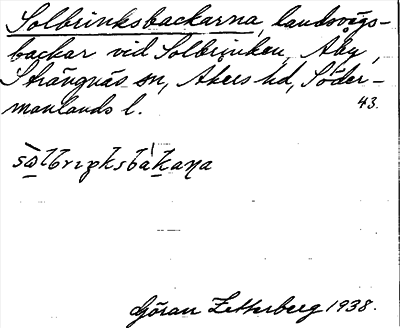 Solbrinksbackarna, landsvägs-
backar vid Solbrinken, Åby,
Strängnäs sn, Åkers hd, Söder-
manlands l. 43.
Göran Zetterberg 1938.